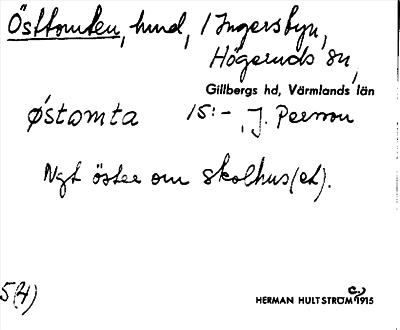 Östtomten, hmd, i Ingersbyn,
Högeruds sn,
Gillbergs hd, Värmlands län
østamta 15:- J. Persson
Ngt öster om skolhus(et).
5(4)
HERMAN HULTSTRÖM 1915